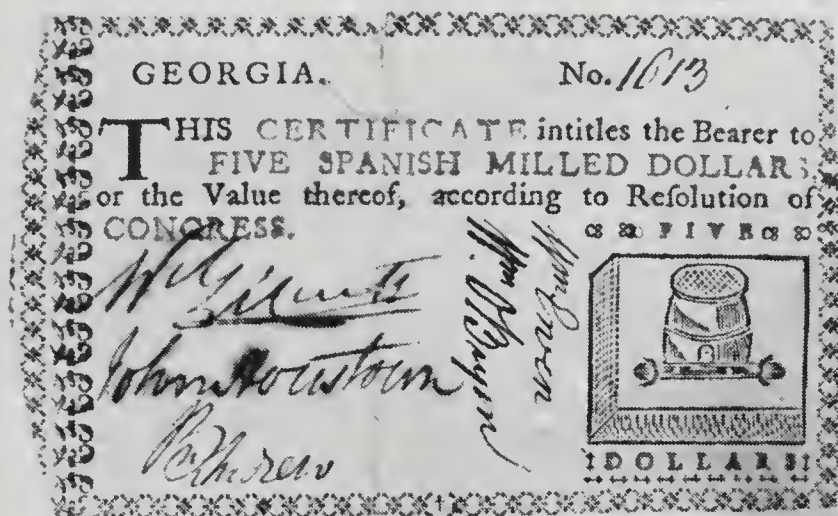 GEORGIA. No. 1613
THIS CERTIFICATE intitles the Bearer to
FIVE SPANISH MILLED DOLLARS,
or the Value thereof, according to Reſolution of
CONGRESS.
FIVE
John Houstoun
Wm O'Bryen
DOLLARS